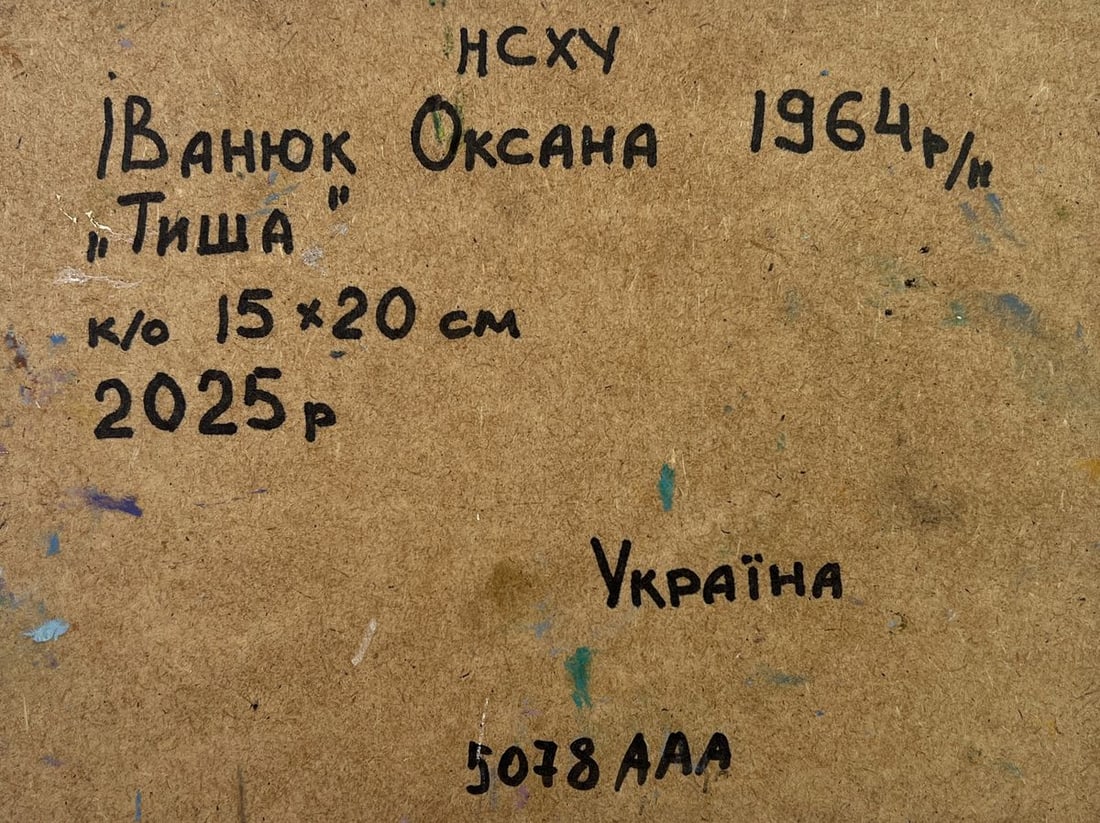 НСХУ
Іванюк Оксана 1964 р/н
„Тиша"
к/о 15 × 20 см
2025 р
Україна
5078 ААА